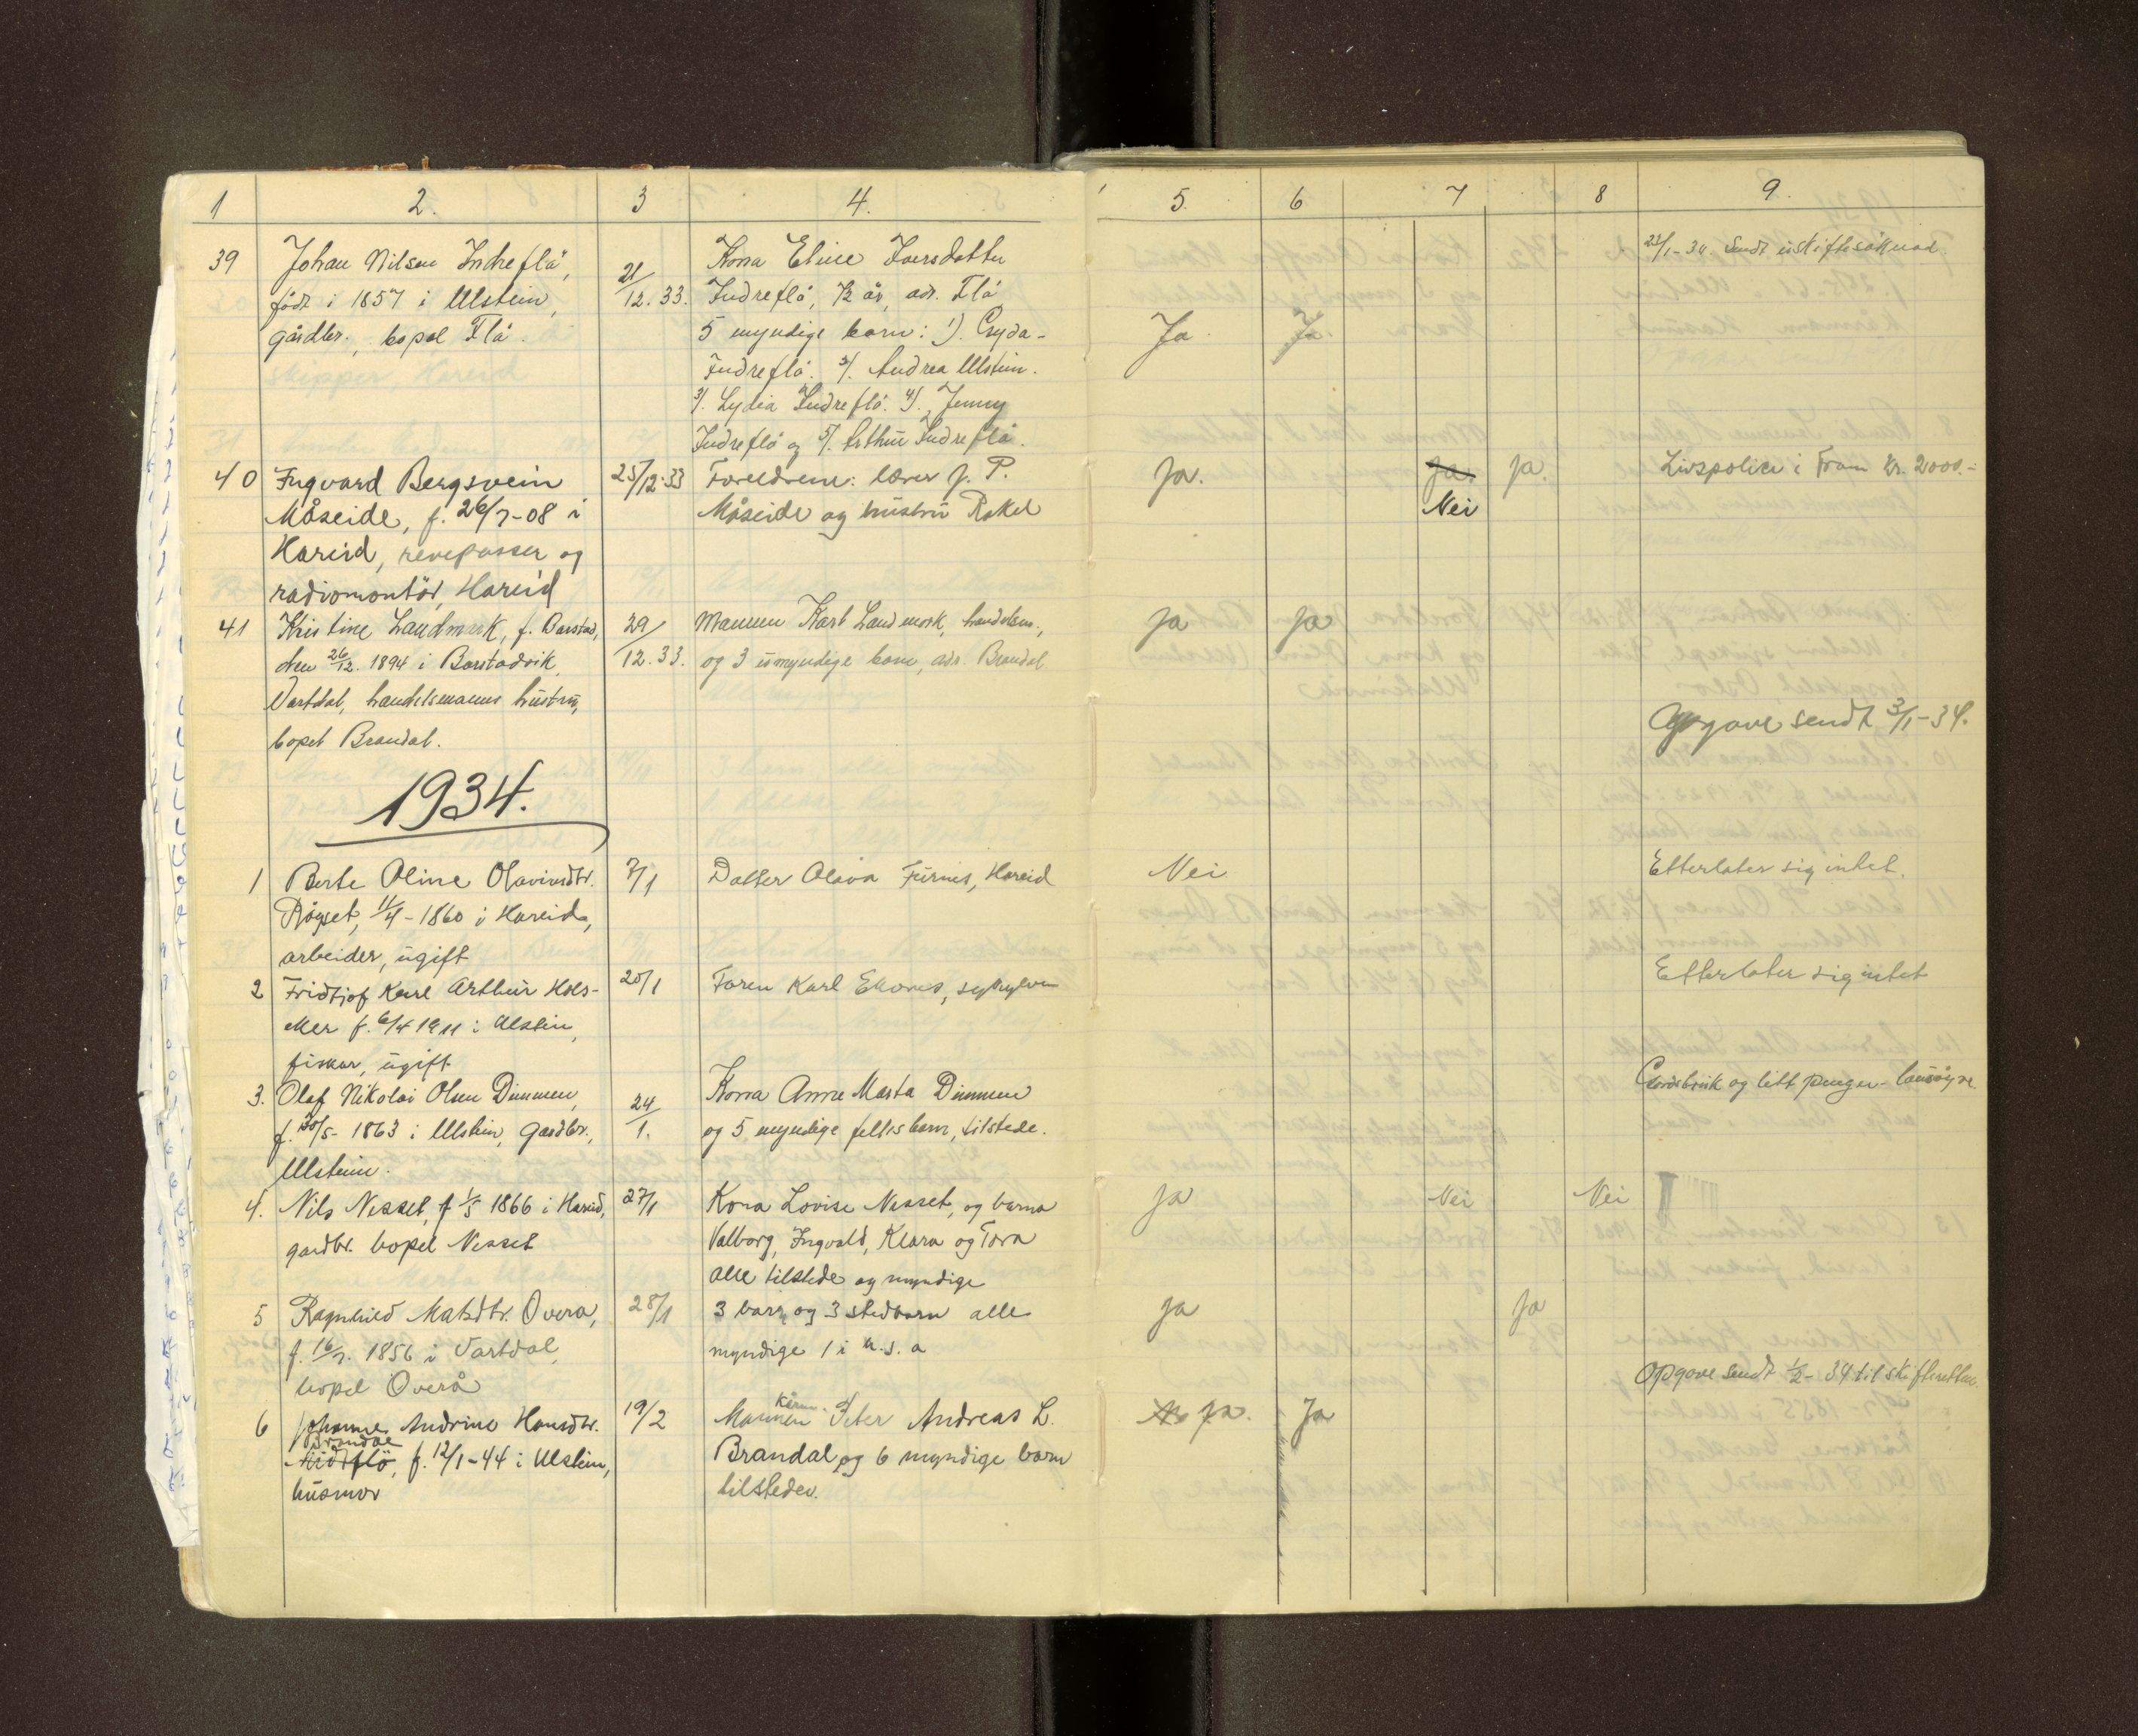 1 2. 3 4. 5. 6 7 8 9.
39 Johan Nilsen Indreflå,
født i 1857 i Ulstein,
gårdbr., bopel Flå.
21/12.33.
Kona Eline Iversdatter
Indreflå, 72 år, adr. Flå
5 myndige barn: 1).
Indreflå. 2/. Andrea Ulstein.
3/. Lydia Indreflå. 4). Jenny
Indreflå og 5/. Arthur Indreflå.
Ja. Ja.
23/1-34. Sendt uskiftesøknad.
40 Ingvard Bergsvein
Måseide, f. 26/7-08 i
Hareid, revepasser og
radiomontör, Hareid
25/12.33
Foreldrene: lærer J. P.
Måseide og hustru Rakel
Ja. Ja. Ja.
Nei
Livspolice i Fram kr. 2000.-
41 Kristine Landmark, f. Barstad,
den 26/12. 1894 i Barstadvik,
Vartdal, handelsmanns hustru,
bopel Brandal.
29/12.33.
Mannen Karl Landmark, handelsm.,
og 3 umyndige barn, adr. Brandal
Ja Ja
Opgave sendt 3/1-34.
1934.
1 Berte Oline Olavinsdtr.
Röyset, 11/4-1860 i Hareid,
arbeider, ugift
7/1
Datter Olava Furnes, Hareid
Nei
Etterlater sig intet.
2 Fridtjof Karl Arthur
f. 6/4 1911 i Ulstein,
fisker, ugift
20/1
Faren Karl
Etterlater sig intet
3. Olaf Nikolai Olsen Dimmen,
f. 30/5-1863 i Ulstein, Gardbr.,
Ulstein.
24/1.
Kona Anne Marta Dimmen
og 5 myndige felles barn, tilstede.
Gardsbruk og litt penger - lausøyre
4. Nils Nesset, f 1/5 1866 i Hareid,
gardbr. bopel Nesset
27/1
Kona Lovise Nesset, og barna
Valborg, Ingvald, Klara og Tora
alle tilstede og myndige
Ja Nei Nei
5 Ragnhild Matsdtr. Overå,
f. 16/7. 1856 i Vartdal,
bopel Överå
28/1
3 barn og 3 stedbarn alle
myndige 1 i u.s.a
Ja Ja
Opgave sendt 1/2-34 til skifteretten.
6 Johanne Andrine Hansdtr.
Brandal
Midtflö, f. 12/1-44 i Ulstein,
husmor
19/2
Mannen kårm. Peter Andreas L.
Brandal og 6 myndige barn
tilsteder.
Ja. Ja